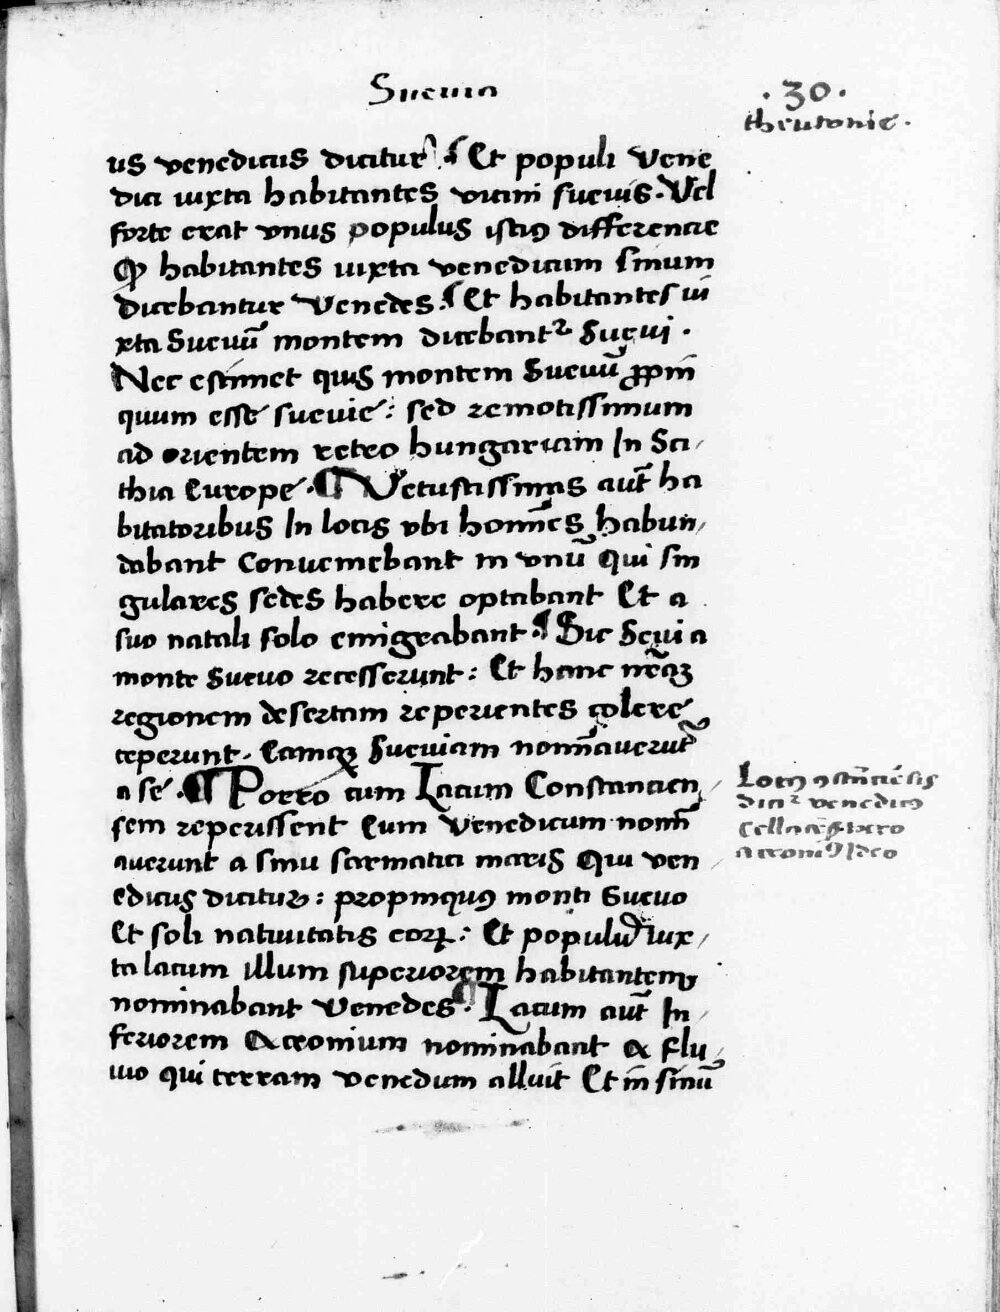 Suevia
. 30 .
theutonie .
us venedicus dicitur . Et populi Vene
dici iuxta habitantes vicini suevis . Vel
forte erat vnus populus istius differencie
Qꝙ habitantes iuxta venedicum sinum
dicebantur Venedes . Et habitantes iu
xta Suevū montem dicebant᷑ Suevi .
Nec estimet quis montem Suevū ꝓpin
quum esse suevie : sed remotissimum
ad orientem retro hungariam In Sci /
thia Europe . ¶ Vetustissimis aut̄ ha
bitatoribus In locis vbi homīes habun /
dabant Conveniebant in vnū qui sin
gulares sedes habere optabant Et a
suo natali solo emigrabant . ¶ Sic Sevi a
monte Suevo recesserunt : Et hanc nr̄aꝫ
regionem desertam reperientes colere
ceperunt . Eamqꝫ Sueviam nomīaverūt
a se . ¶ Porro cum Lacum Constancien /
sem reperissent Eum Venedicum nomī
averunt a sinu sarmatici maris Qui ven /
edicus dicitur : propinquꝰ monti Suevo
Et soli nativitatis eoꝝ : Et populū iux /
ta lacum illum superiorem habitantem
nominabant Venedes . ¶ Lacum aut̄ In /
feriorem Acronium nominabant a flu /
vio qui terram venedum alluit Et in sinū
Lacꝰ ꝯstāciēsis
dicit᷑ venedicꝰ
cellacēsis vero
acroniꝰ Ideo